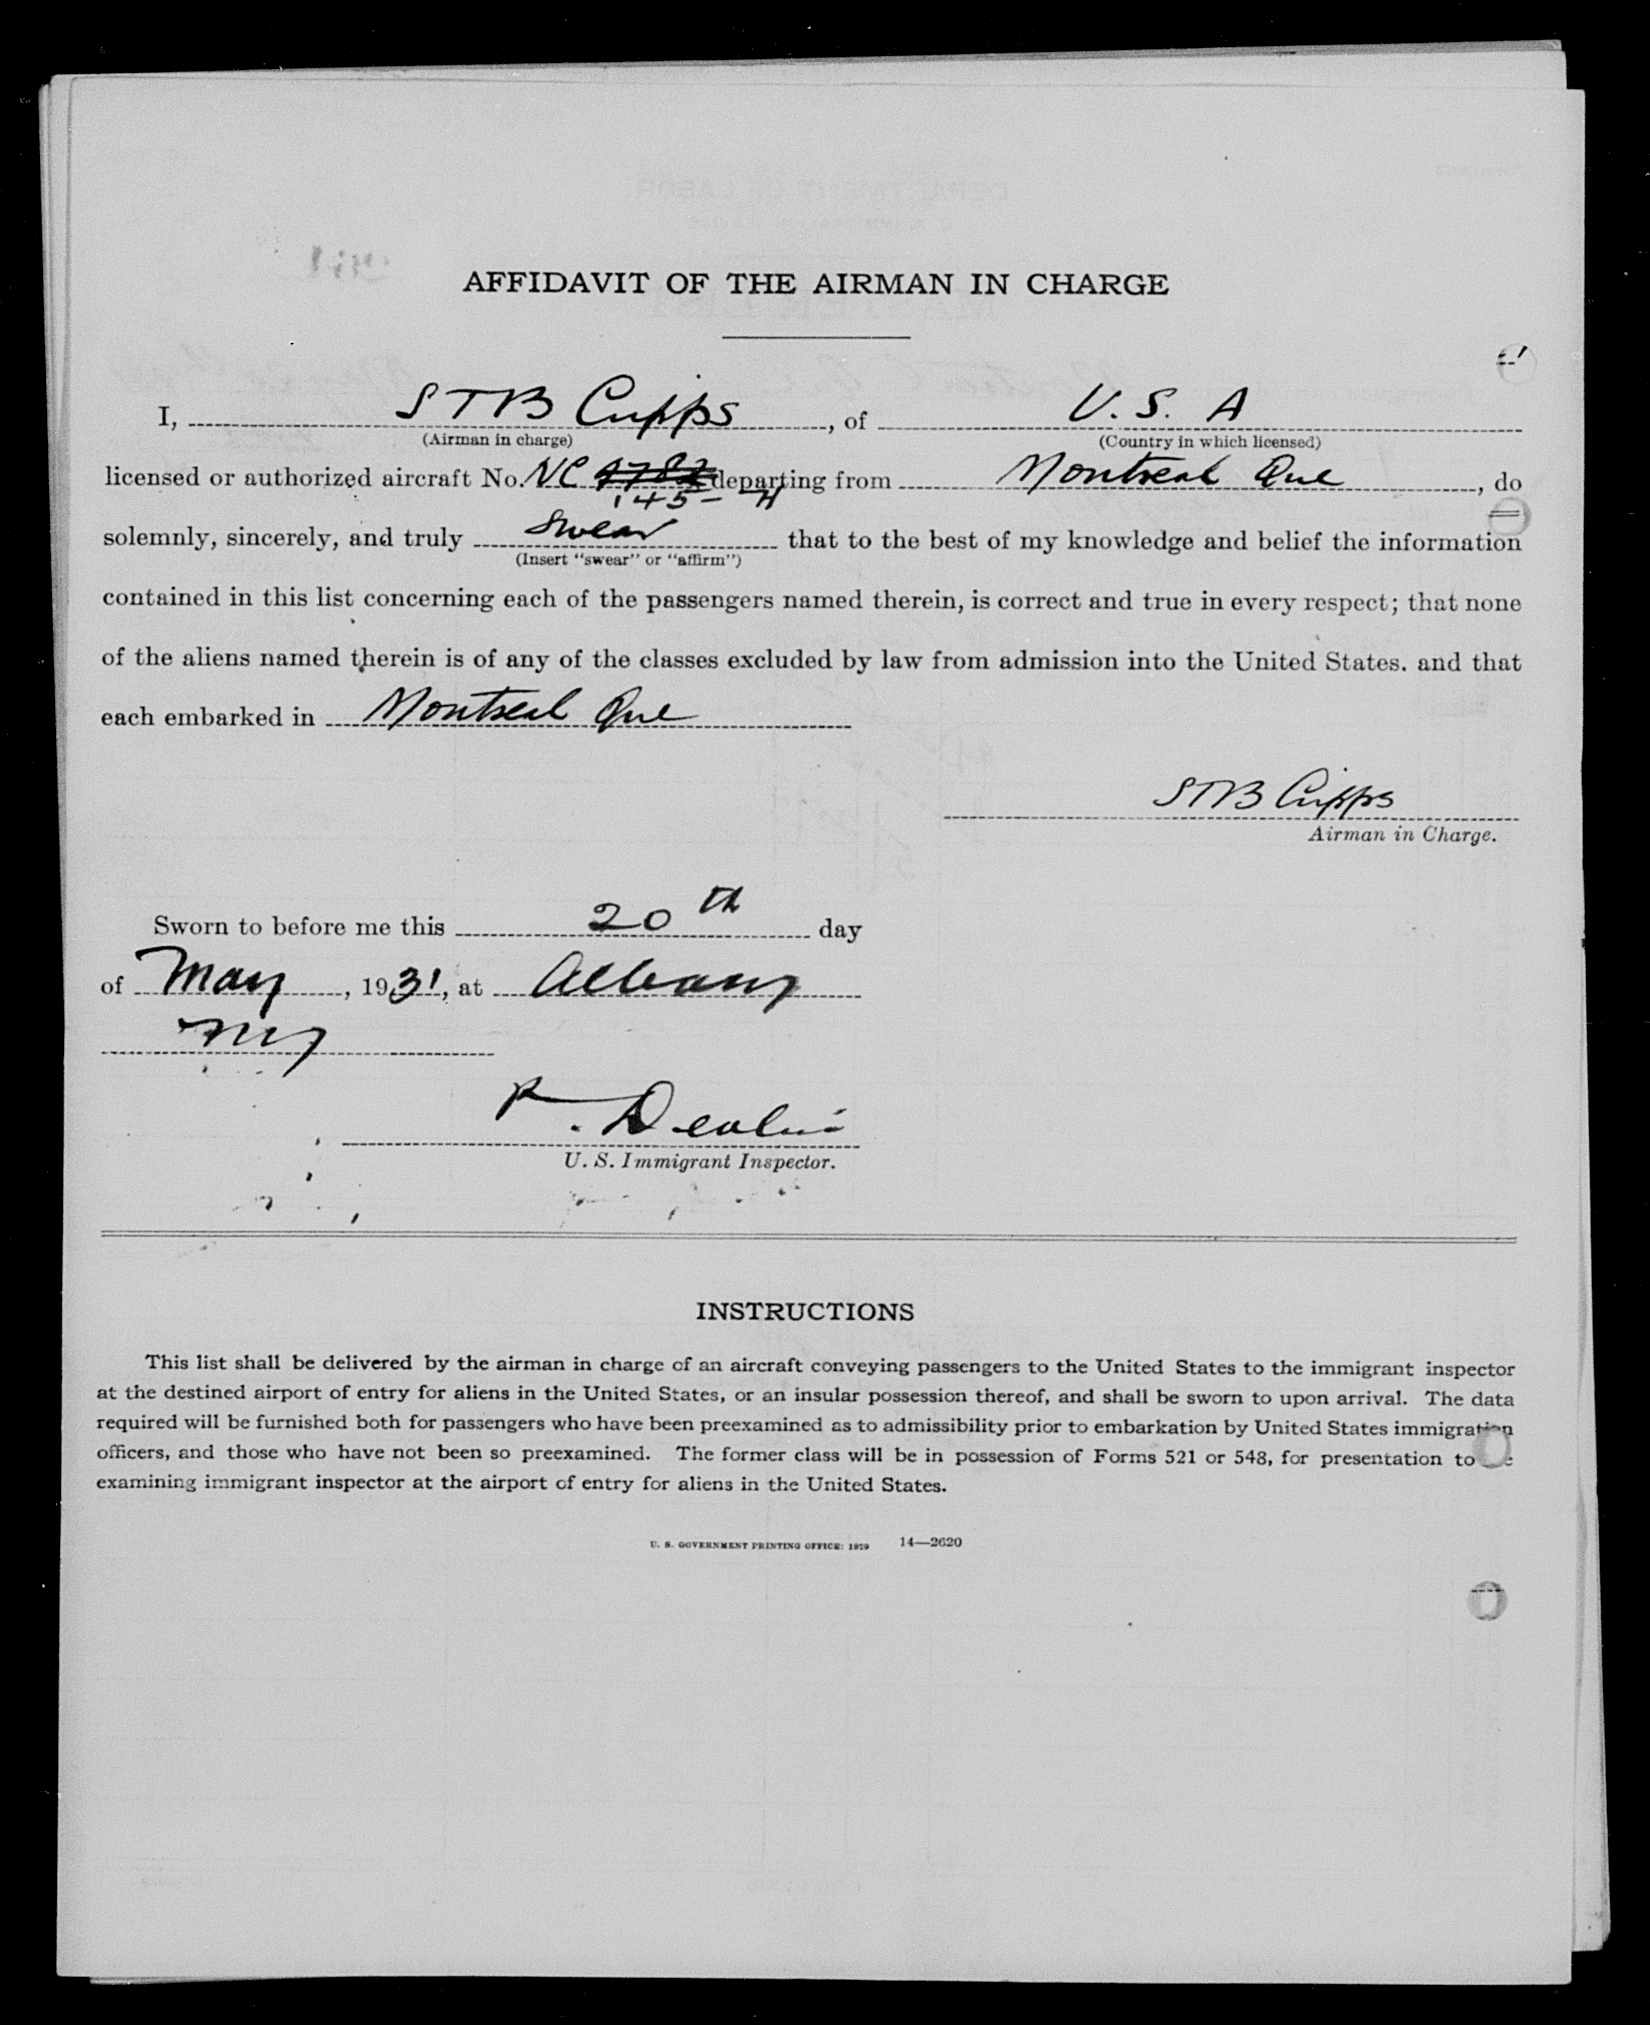 AFFIDAVIT OF THE AIRMAN IN CHARGE
I, STB Cupps, of U. S. A
(Airman in charge) (Country in which licensed)
licensed or authorized aircraft No. NC departing from Montreal Que, do
145-H
solemnly, sincerely, and truly swear that to the best of my knowledge and belief the information
(Insert "swear" or "affirm")
contained in this list concerning each of the passengers named therein, is correct and true in every respect; that none
of the aliens named therein is of any of the classes excluded by law from admission into the United States. and that
each embarked in Montreal Que
STB Cupps
Airman in Charge.
Sworn to before me this 20th day
of May, 1931, at Albany
NY
U. S. Immigrant Inspector.
INSTRUCTIONS
This list shall be delivered by the airman in charge of an aircraft conveying passengers to the United States to the immigrant inspector
at the destined airport of entry for aliens in the United States, or an insular possession thereof, and shall be sworn to upon arrival. The data
required will be furnished both for passengers who have been preexamined as to admissibility prior to embarkation by United States immigration
officers, and those who have not been so preexamined. The former class will be in possession of Forms 521 or 548, for presentation to
examining immigrant inspector at the airport of entry for aliens in the United States.
U. S. GOVERNMENT PRINTING OFFICE: 1929 14—2620